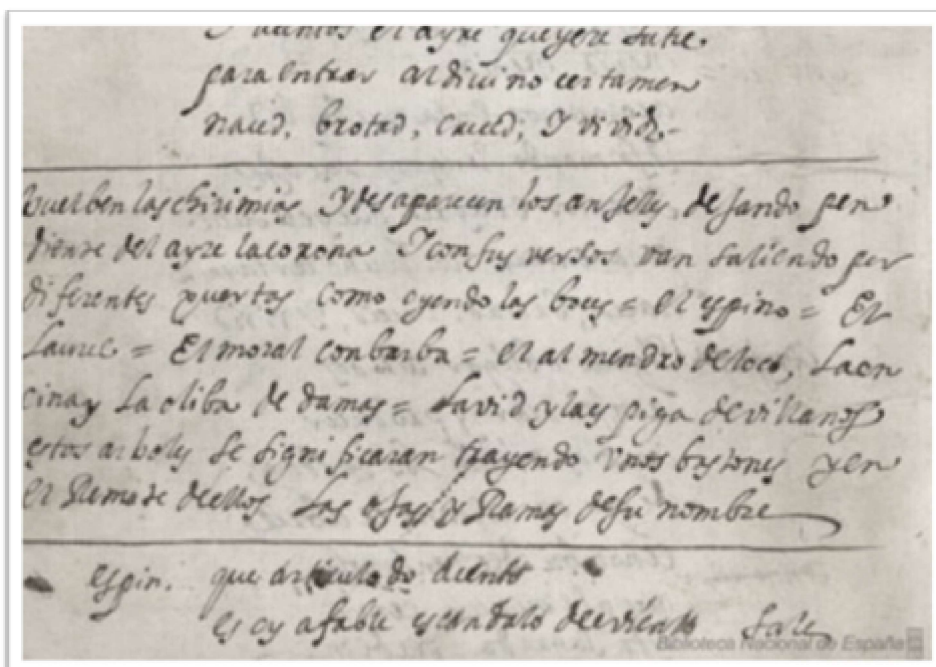 el ayre que yere sutil
para entrar al diuino certamen
naced, brotad, creced, y viuid.
buelben las chirimias y desaparecen los anjeles, dejando pen
diente del ayre la corona y con sus versos van saliendo por
diferentes puertas como oyendo las boces = el espino = El
Laurel = El moral con barba = el almendro de loco, La en
cina y La oliba de damas = La vid y la espiga de villanos
estos arboles se significaran trayendo vnos bastones y en
el Remate de ellos Las ojas y Ramas de su nombre
espin. que articulado
es oy afable escandalo del viento Sale
Biblioteca Nacional de España